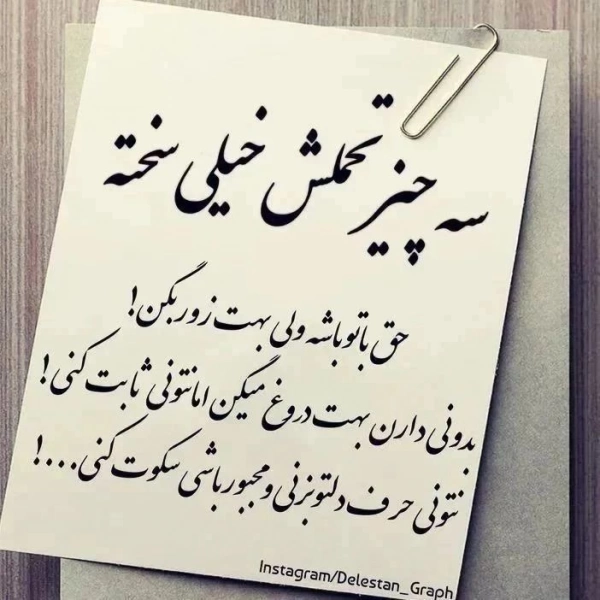 سه چیز تحملش خیلی سخته
حق با تو باشه ولی بهت زور بگن!
بدونی دارن بهت دروغ میگن اما نتونی ثابت کنی!
نتونی حرف دلتو بزنی و مجبور باشی سکوت کنی...!
Instagram/Delestan_Graph